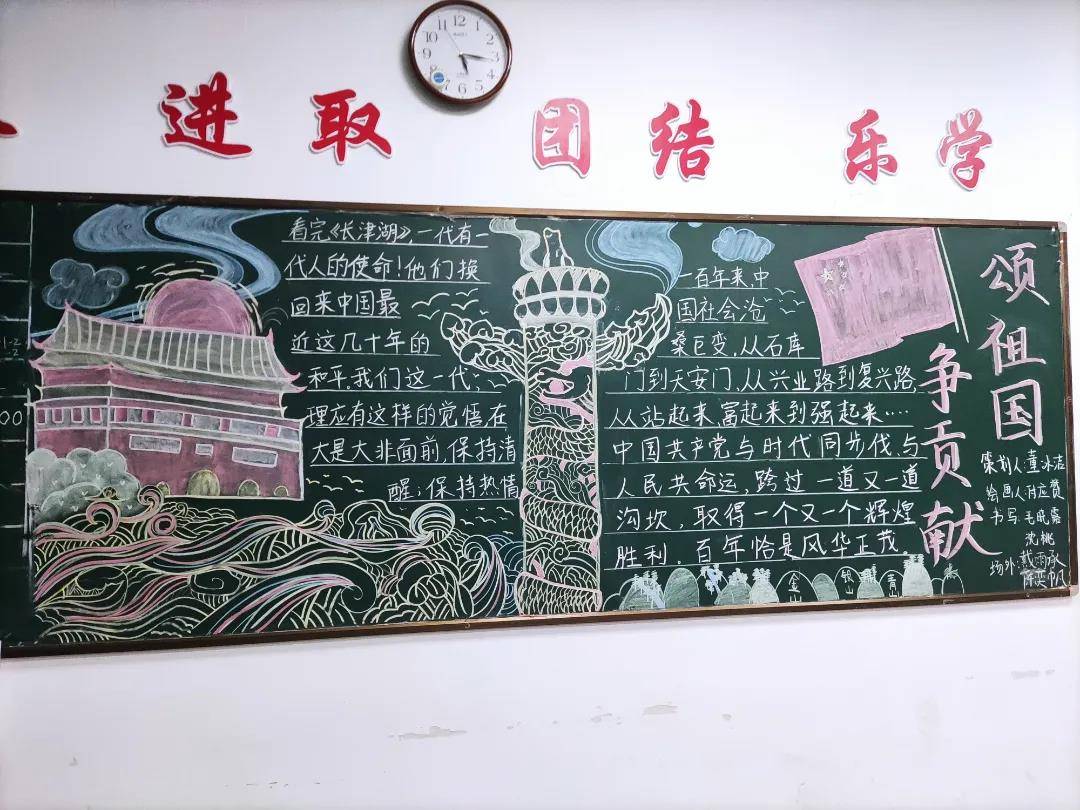 进取 团结 乐学
看完《长津湖》,一代有一
代人的使命!他们换
回来中国最
近这几十年的
和平,我们这一代:
理应有这样的觉悟,在
大是大非面前,保持清
醒;保持热情
一百年来,中
国社会沧
桑巨变,从石库
门到天安门,从兴业路到复兴路,
从站起来,富起来到强起来……
中国共产党与时代同步伐,与
人民共命运,跨过一道又一道
沟坎,取得一个又一个辉煌
胜利,百年恰是风华正茂
颂祖国
争贡献
策划人:董冰洁
绘画人:
书写:毛晓露
沈桃
场外:戴雨承
陈奕帆